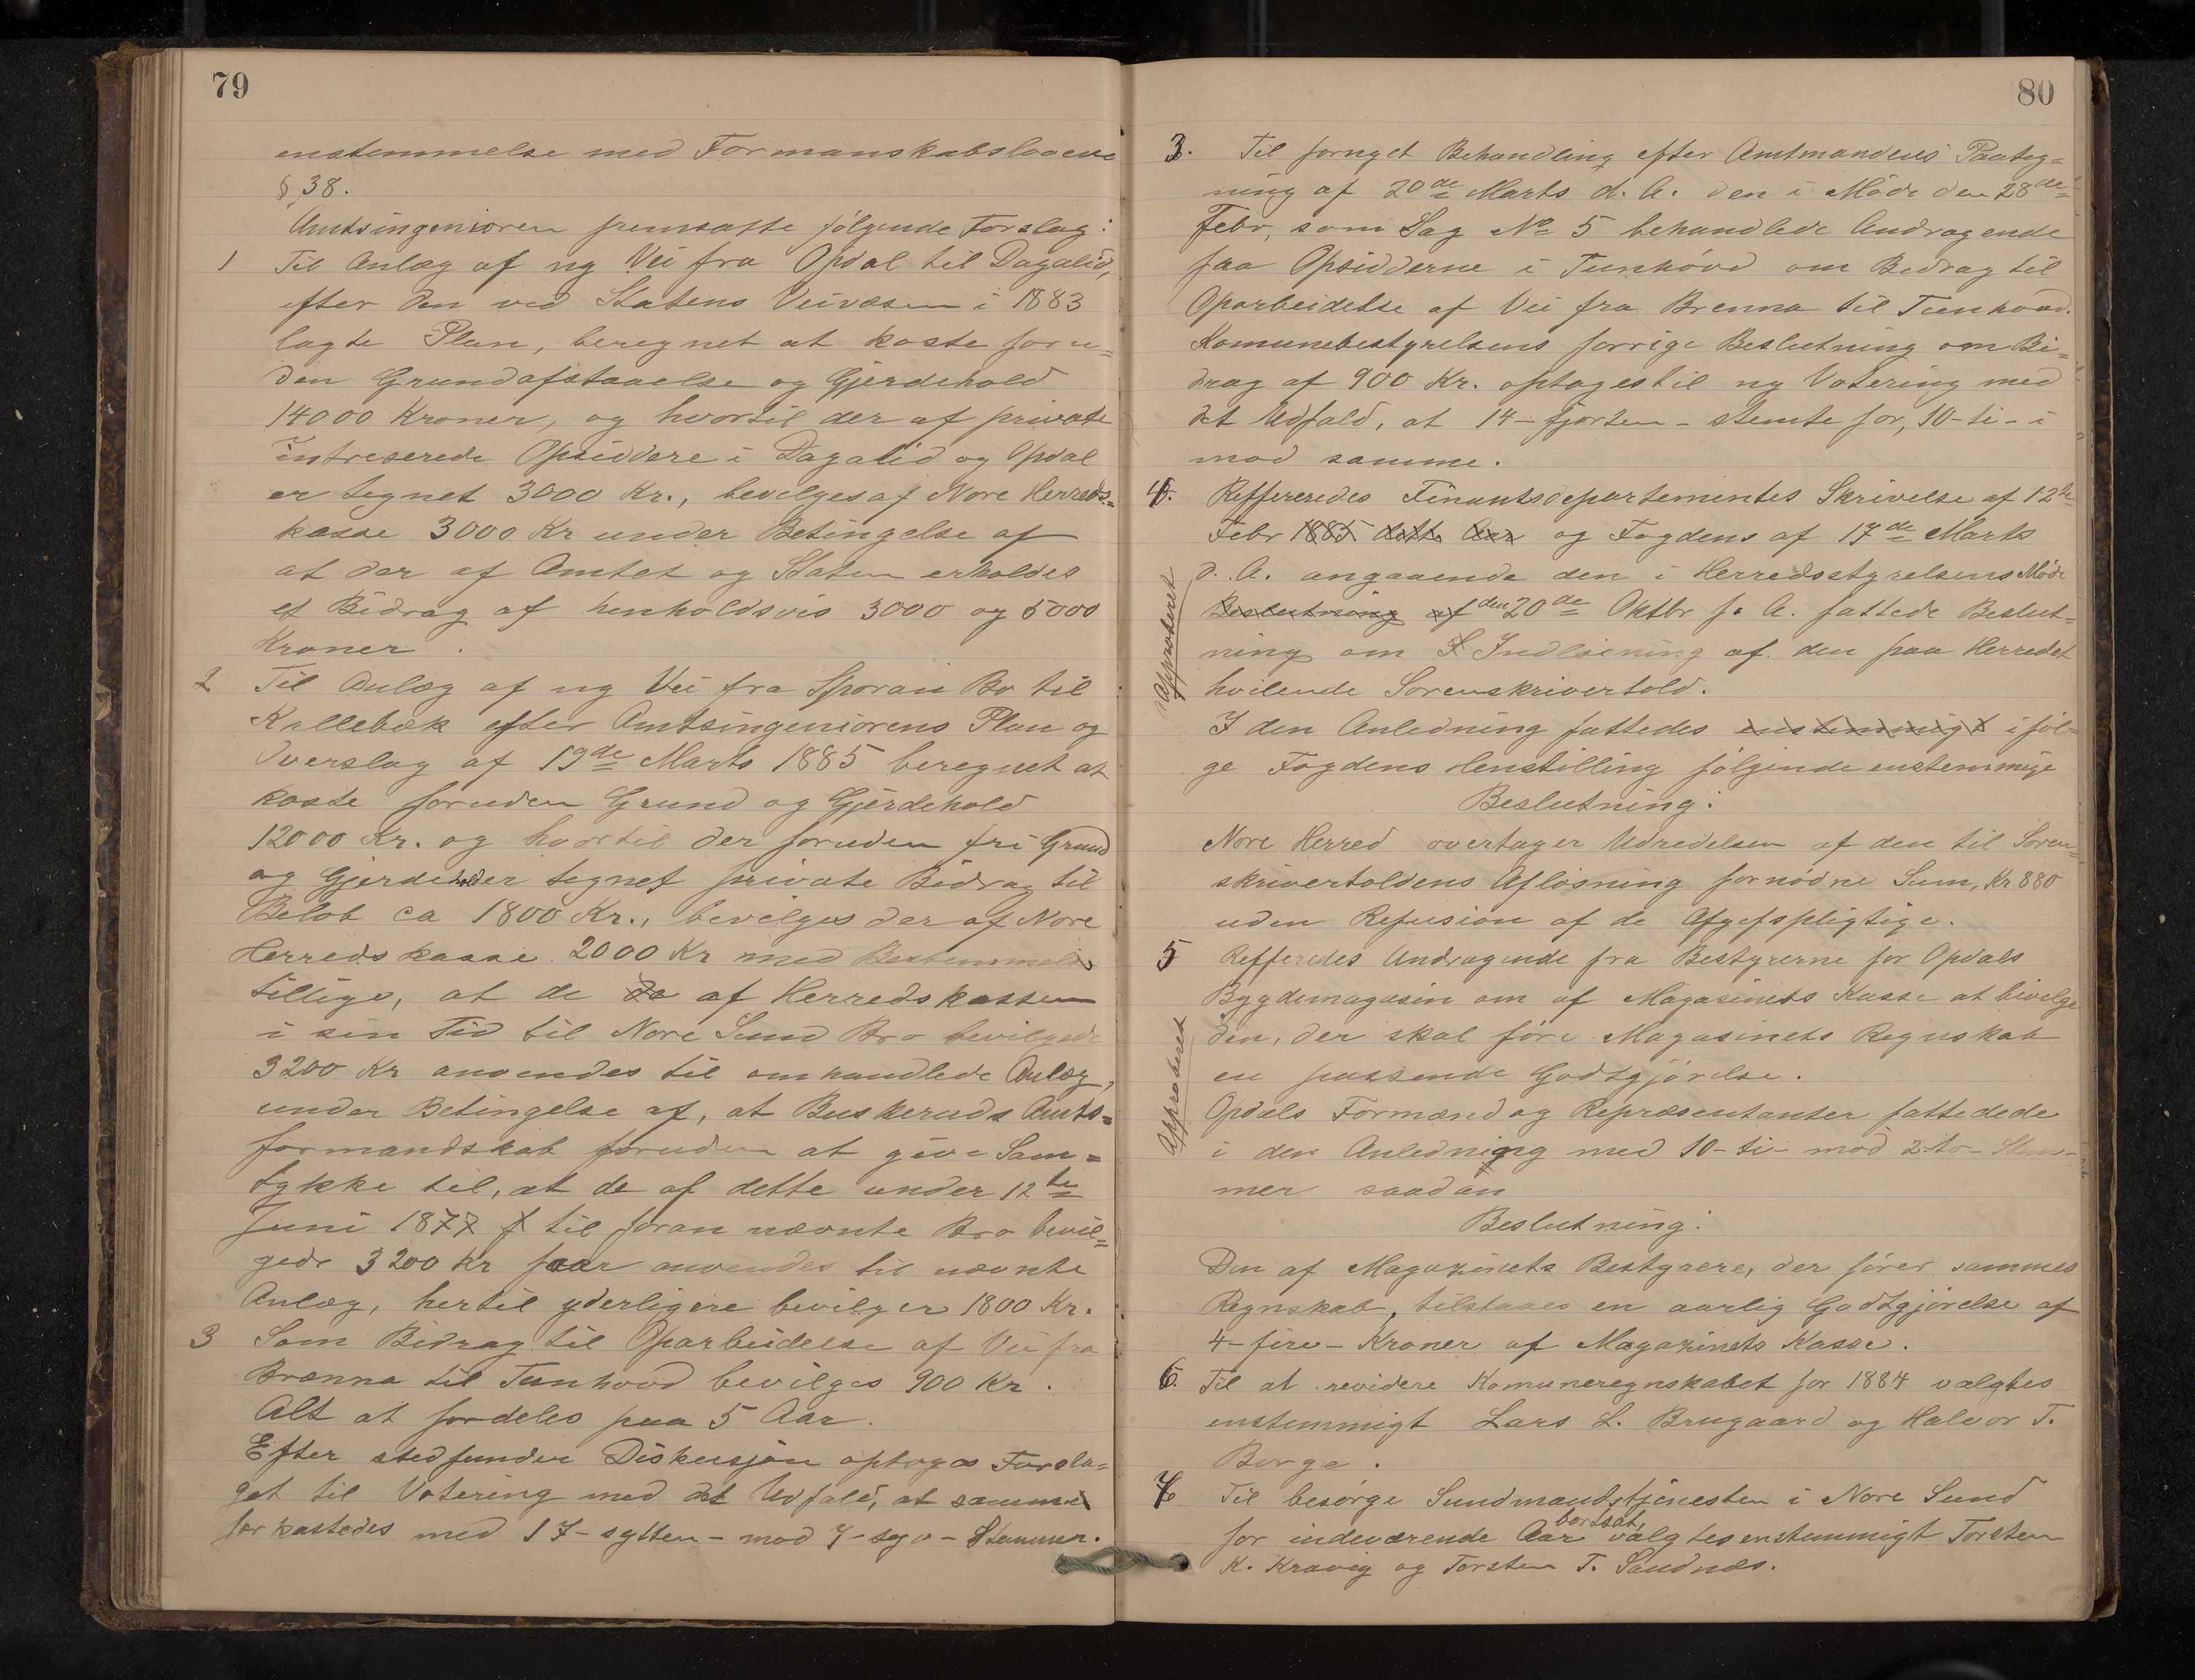 79
enstemmelse med Formanskabslovens
§ 38.
Amtsingeniøren fremsatte følgende Forslag:
1 Til Anlæg af ny Vei fra Opdal til Dagalid,
efter den ved Statens Veivæsen i 1883
lagte Plan, beregnet at koste foru=
den Grundafstaaelse og Gjerdehold
14000 Kroner, og hvortil der af private
intreserede Opsiddere i Dagalid og Opdal
er tegnet 3000 Kr., bevilges af Nore Herreds=
kasse 3000 Kr under Betingelse af
at der af Amtet og Staten erholdes
et Bidrag af henholdsvis 3000 og 5000
Kroner.
2 Til Anlæg af ny Vei fra Sporan Bo til
Kallebæk efter Amtsingeniørens Plan og
Overslag af 19de Marts 1885 beregnet at
koste foruden Grund og Gjerdehold
12000 Kr. og hvortil der foruden fri Grund
og Gjerdehold er tegnet private Bidrag til
Beløb ca 1800 Kr., bevilges der af Nore
Herredskasse 2000 Kr med Bestemmelse
tillige, at de da af Herredskassen
i sin Tid til Nore Sund Bro bevilgede
3200 Kr anvendes til omhandlede Anlæg,
under Betingelse af, at Buskeruds Amts=
formandskab foruden at give Sam=
tykke til, at de af dette under 12te
Juni 1877 f til foran nævnte Bro bevil=
gede 3200 Kr faar anvendes til nævnte
Anlæg, hertil yderligere bevilger 1800 Kr.
3 Som Bidrag til Oparbeidelse af Vei fra
Brænna til Tunhovd bevilges 900 Kr.
Alt at fordeles paa 5 Aar.
Efter stedfunden Diskusjon optoges Forsla=
get til Votering med det Udfald, at samme
forkastedes med 17-sytten- mod 7-syv- Stemmer.
80
3. Til fornyet Behandling efter Amtmandens Paateg=
ning af 20de Marts d. A. den i Møde den 28de
Febr, som Sag No 5 behandlede Andragende
fra Opsidderne i Tunhövd om Bidrag til
Oparbeidelse af Vei fra Brenna til Tunhövd.
Komunebestyrelsens forrige Beslutning om Bi=
drag af 900 Kr. optoges til ny Votering med
det Udfald, at 14-fjorten- stemte for, 10-ti- i
mod samme.
4. Reffereredes Finantsdepartementes Skrivelse af 12te
Febr 1885 dette Aar og Fogdens af 17de Marts
d. A. angaaende den i Herredsstyrelsens Møde
Beslutning af den 20de Oktbr f. A. fattede Beslut=
ning om Indløsning af den paa Herredet
hvilende Sorenskrivertold.
Approberet
I den Anledning fattedes enstemmigt i føl=
ge Fogdens Henstilling følgende enstemmige
Beslutning:
Nore Herred overtager Udredelsen af den til Soren=
skrivertoldens Afløsning fornødne Sum, Kr 880
uden Refusion af de Afgiftspligtige.
5 Refferedes Andragende fra Bestyrerne for Opdals
Bygdemagasin om af Magasinets Kasse at bivilge
den, der skal føre Magasinets Regnskab
en passende Godtgjørelse.
Approberet
Opdals Formænd og Repræsentanter fattedede
i den Anledning med 10-ti- mod 2-to- Stem-
mer saadan
Beslutning:
Den af Magazinets Bestyrere, der fører sammes
Regnskab, tilstaaes en aarlig Godtgjørelse af
4-fire- Kroner af Magazinets Kasse.
6. Til at revidere Komuneregnskabet for 1884 valgtes
enstemmigt Lars L. Brugaard og Halvor T.
Borge.
7 Til besørge Sundmandstjenesten i Nore Sund
for indeværende Aar bortsat, valgtes enstemmigt Torsten
K. Kravig og Torsten T. Sandnæs.